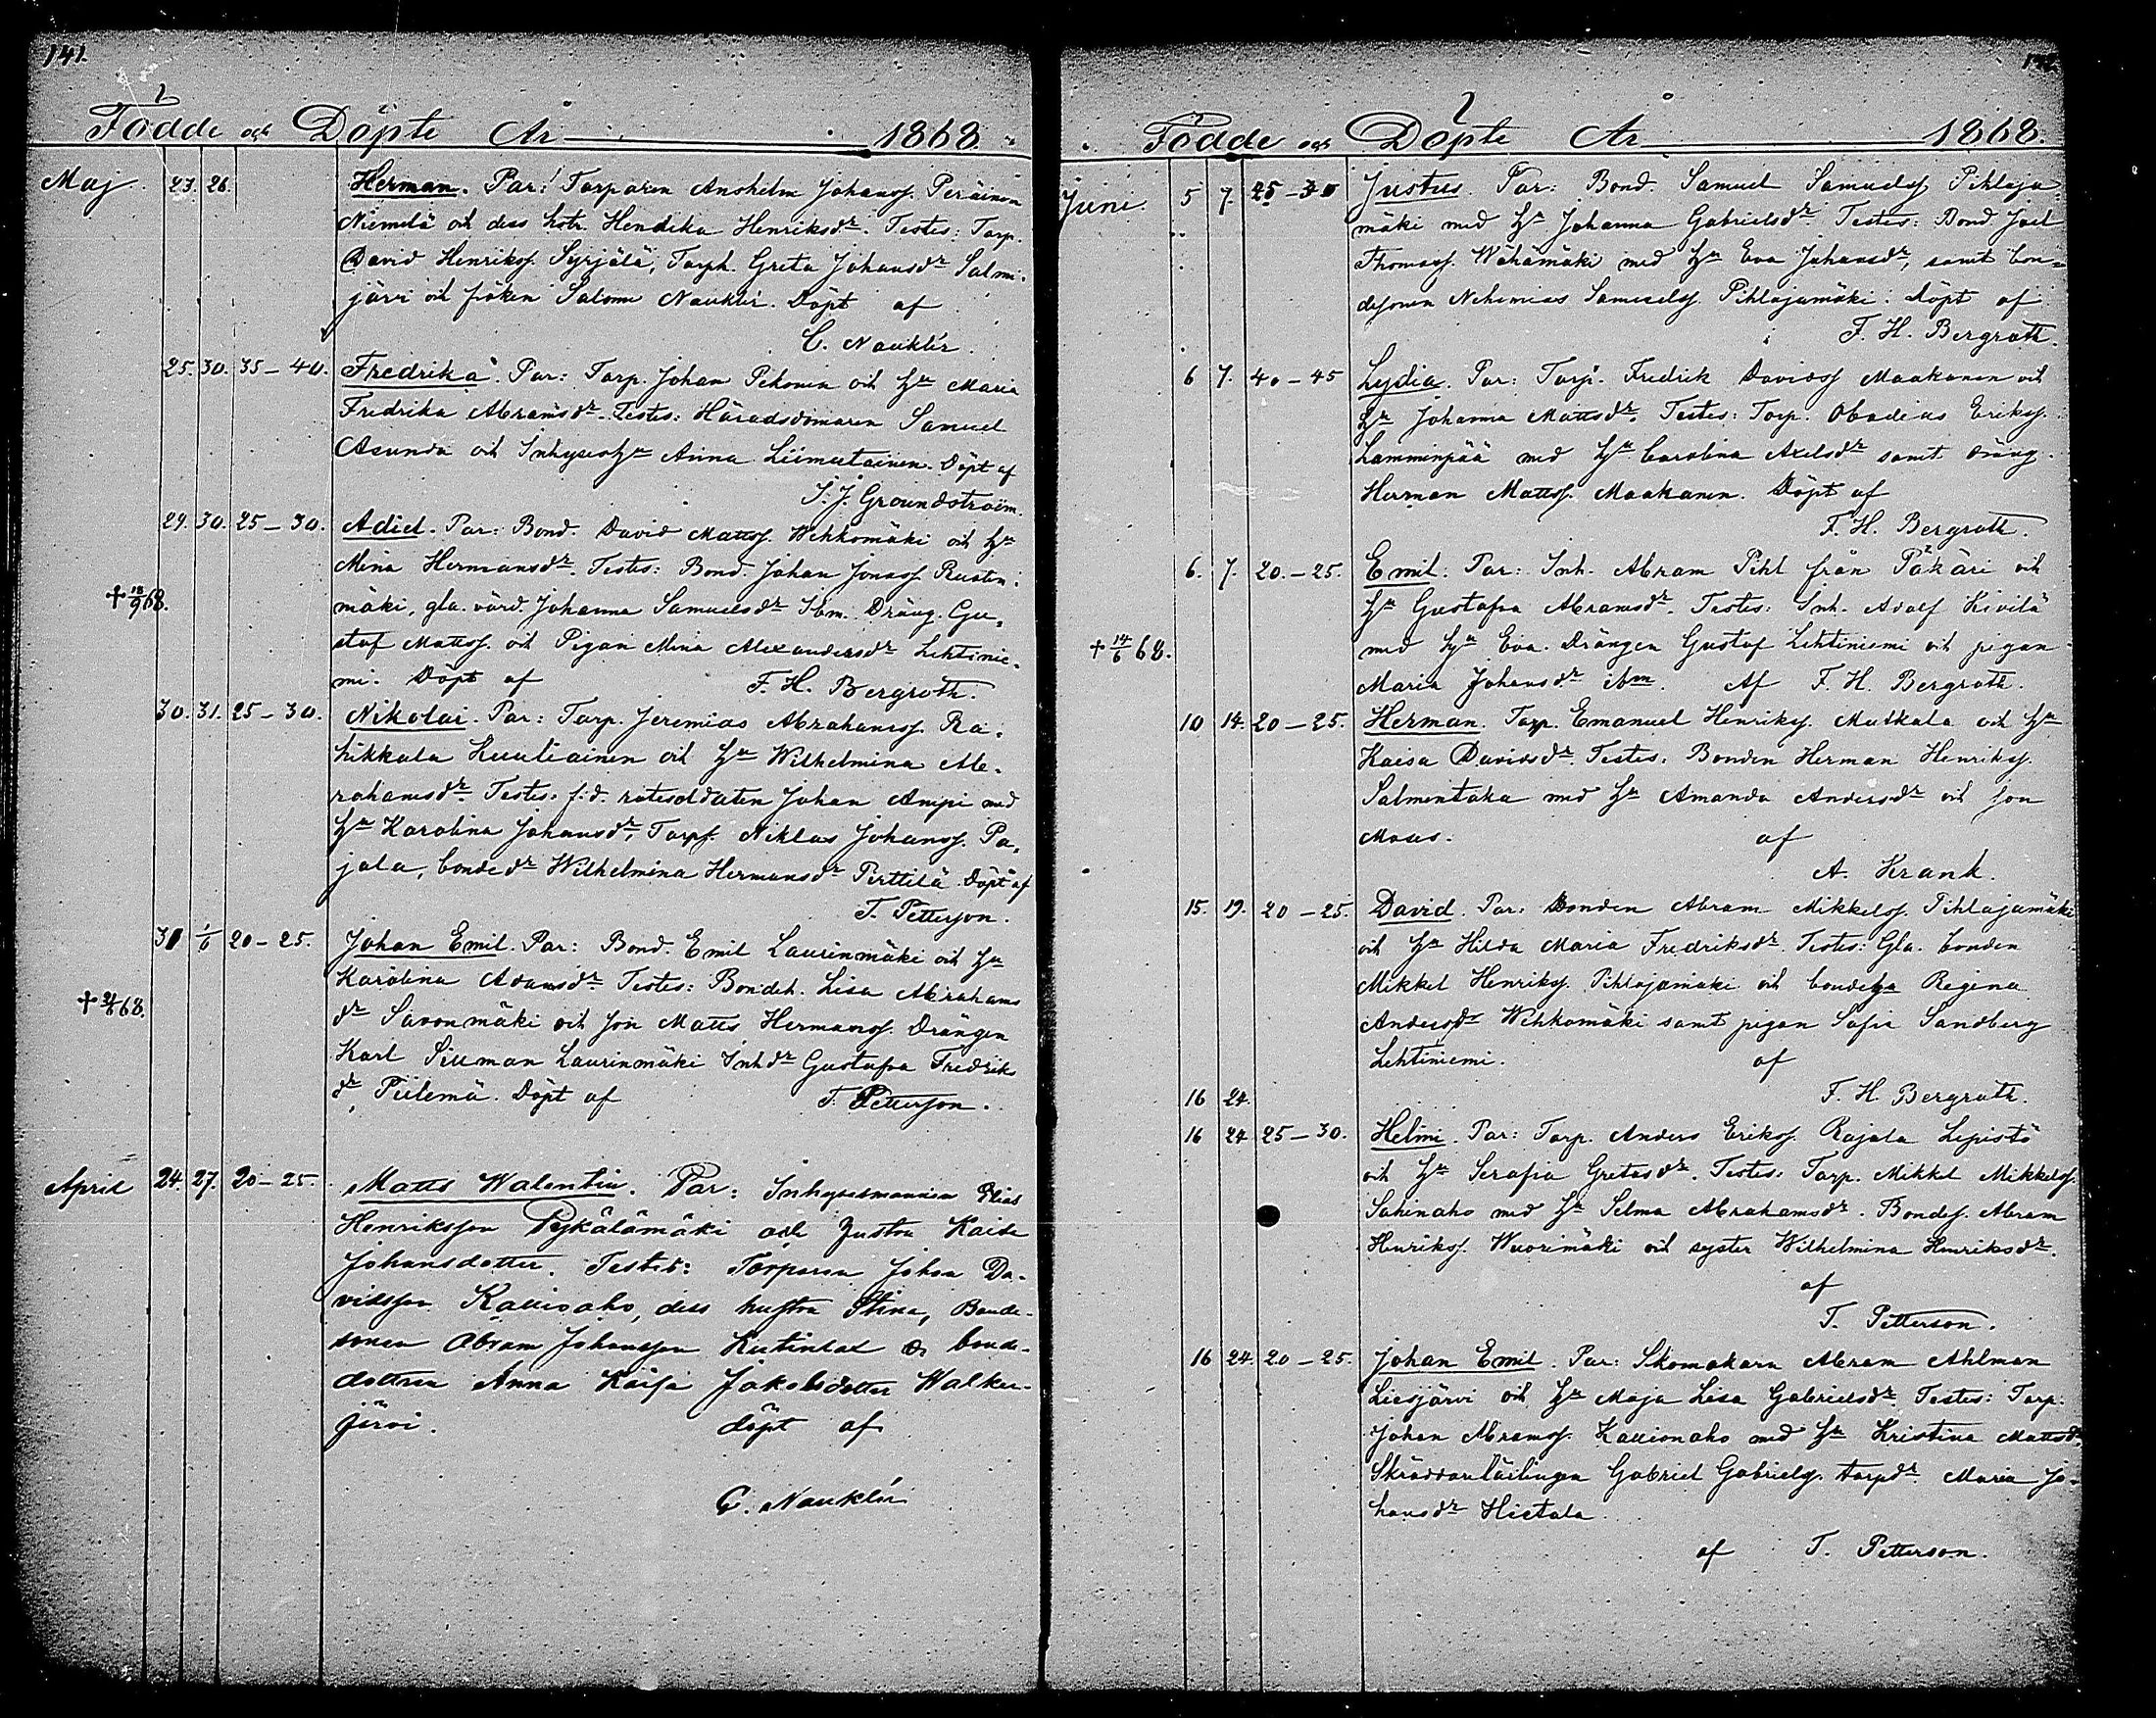 141.
Födde och Döpte År 1868.
Maj. 23. 26. Herman. Par: Torparen Anshelm Johanss. Peräinen
Niemelä och dess hstr. Hendika Henriksdr. Testes: Torp.
David Henrikss. Syrjälä, Torph. Greta Johansdr Salmi-
järvi och fröken Salome Nauklér. Döpt af
C. Nauklér.
25. 30. 35-40. Fredrika. Par: Torp. Johan Pekonen och Hu Maria
Fredrika Abramsdr. Testes: Häradsdomaren Samuel
Asunda och Inhyses Hu Anna Liimatainen. Döpt af
I. J. Groundstroëm.
29. 30. 25-30. Adiel. Par: Bond. David Mattss. Wehkomäki och Hu
Mina Hermansdr. Testes: Bond. Johan Jonass. Rusten-
† 18/9 68. mäki, gla. värd. Johanna Samuelsdr Ibm. Dräng. Gu-
staf Mattss. och Pigan Mina Alexandersdr Lehtinie-
mi. Döpt af F. H. Bergroth.
30. 31. 25-30. Nikolai. Par: Torp. Jeremias Abrahamss. Ra-
hikkala Luuliainen och Hu Wilhelmina Ab-
rahamsdr. Testes: f.d. rotesoldaten Johan Ampi med
Hu Karolina Johansdr, Torps. Niklas Johanss. Pa-
jala, bondedr Wilhelmina Hermansdr Perttilä. Döpt af
T. Petterson.
31 1/6 20-25. Johan Emil. Par: Bond. Emil Laurinmäki och Hu
Karolina Adamsdr. Testes: Bondeh. Lisa Abrahams
† 68. dr Savonmäki och son Matts Hermanss. Drängen
Karl Sillman Laurinmäki Inhdr Gustafva Fredriks
dr Piilemä. Döpt af T. Petterson.
April 24. 27. 20-25. Matts Walentin. Par: Inhysesmannen Elias
Henriksson Pyykälämäki och hustru Kaisa
Johansdotter. Testes: Torparen Johan Da-
vidsson Kallioaho, dess hustru Stina, Bonde-
sonen Abram Johansson Kutinlax & bonde-
dottren Anna Kaisa Jakobsdotter Walken-
järvi. döpt af
C. Nauklér
Födde och Döpte År 1868.
Juni. 5 7. 25-30 Justus Par: Bond. Samuel Samuelss Pihlaja-
mäki med Hu Johanna Gabrielsdr. Testes: Bond Joel
Thomass. Wähämäki med Hu Eva Johansdr, samt bon-
desonen Nehemias Samuelss. Pihlajamäki. Döpt af
F. H. Bergroth.
6 7. 40-45 Lydia. Par: Torp. Fredrik Davidss Maakanen och
Hu Johanna Mattsdr. Testes: Torp. Obadias Erikss.
Lamminpää med Hu Carolina Axelsdr samt dräng.
Herman Mattss. Maakanen. Döpt af
F. H. Bergroth.
6. 7. 20.-25. Emil. Par: Inh. Abram Pihl från Pakäri och
Hu Gustafva Abramsdr. Testes: Inh. Adolf Kivilä
† 14/6 68. med Hu Eva. Drängen Gustaf Lehtiniemi och pigan
Maria Johansdr ibm. Af F. H. Bergroth.
10 14. 20-25. Herman. Torp. Emanuel Henrikss. Mutkala och Hu
Kaisa Davidsdr. Testes. Bonden Herman Henrikss.
Salmentaka med Hu Amanda Andersdr och son
Moses. af
A. Krank.
15. 19. 20-25. David. Par: Bonden Abram Mikkelss. Pihlajamäki
och Hu Hilda Maria Fredriksdr. Testes: Gla. bonden
Mikkel Henrikss. Pihlajamäki och bondehu Regina
Andersdr Wehkomäki samt pigan Sofia Sandberg
Lehtiniemi. af
16 24. F. H. Bergroth.
16 24 25-30. Helmi. Par: Torp. Anders Erikss. Rajala Lepistö
och Hu Serafia Gretasdr. Testes: Torp. Mikkel Mikkelss.
Sahinaho med Hu Selma Abrahamsdr. Bondes. Abram
Henrikss. Wuorimäki och syster Wilhelmina Henriksdr.
af
T. Petterson.
16 24. 20-25. Johan Emil. Par: Skomakarn Abram Ahlman
Liesjärvi och Hu Maja Lisa Gabrielsdr. Testes: Torp.
Johan Abramss. Kallionaho med Hu Kristina Mattsdr
Skräddarlärlingen Gabriel Gabrielss. torpdr Maria Jo-
hansdr Hietala.
af T. Petterson.